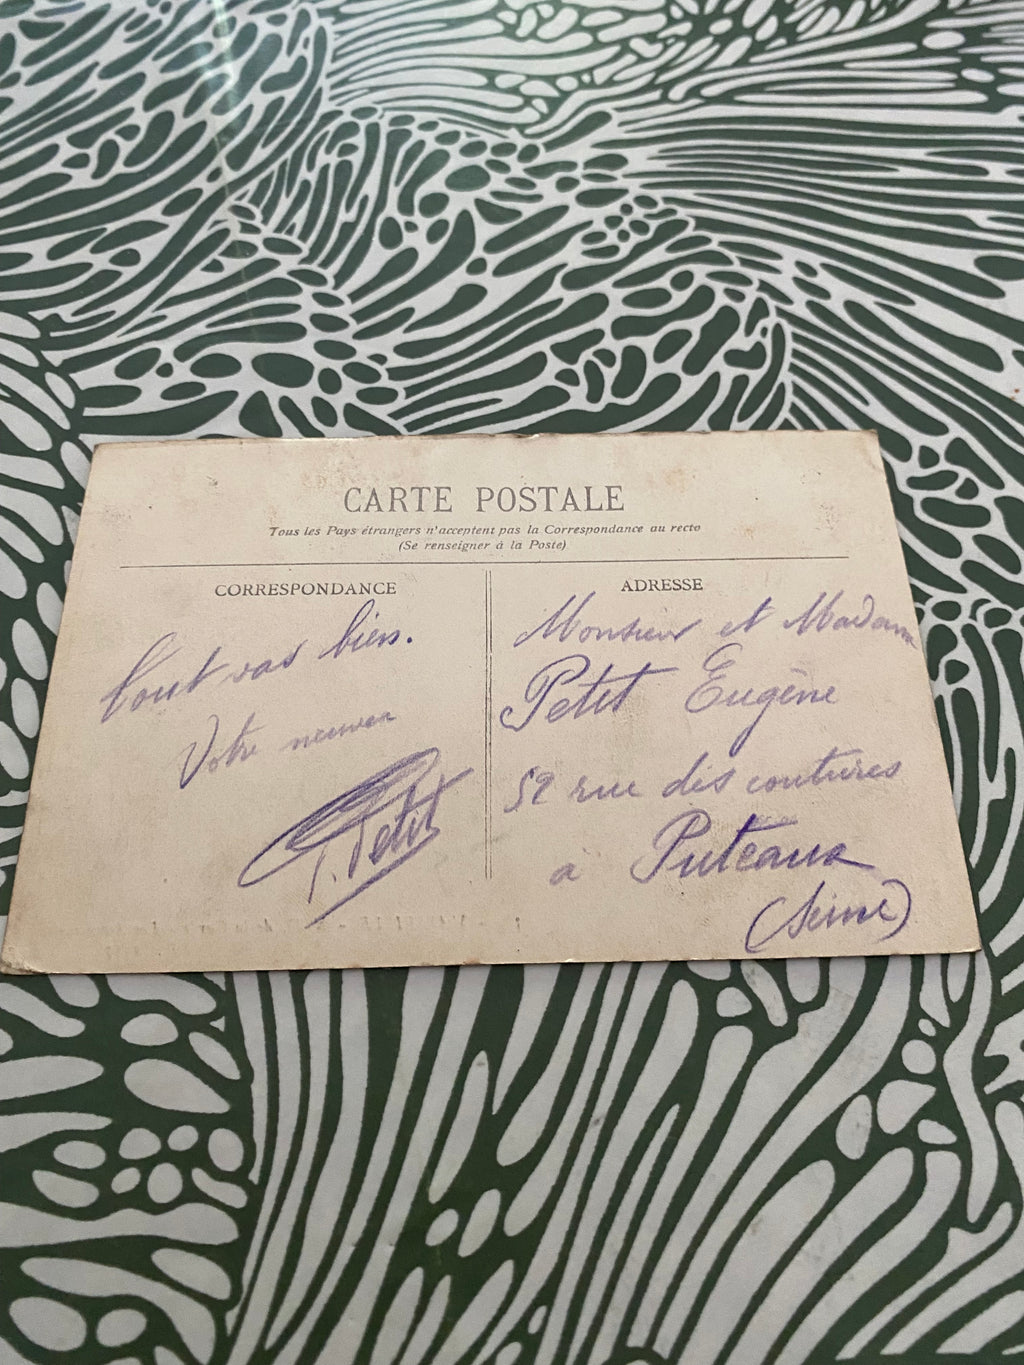 CARTE POSTALE
Tous les Pays étrangers n'acceptent pas la Correspondance au recto
(Se renseigner à la Poste)
CORRESPONDANCE
Tout vas bien.
Votre neuveu
Petit
ADRESSE
Monsieur et Madame
Petit Eugène
52 rue des coutures
a Puteaux
(Seine)